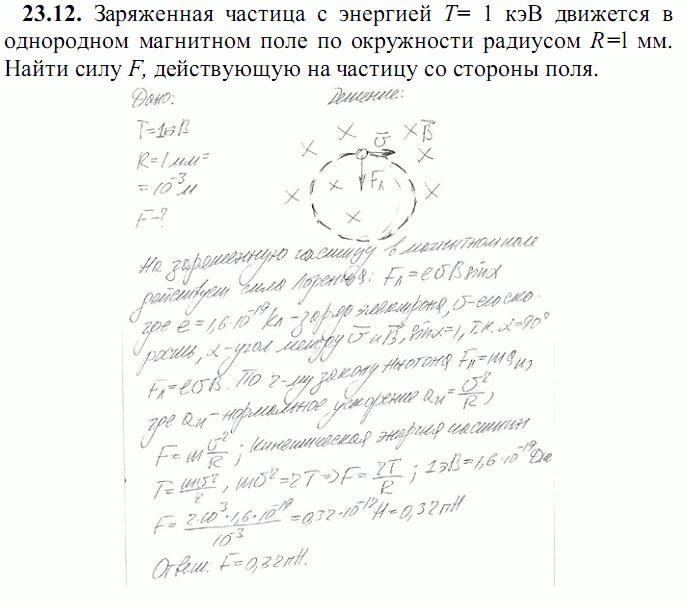 23.12. Заряженная частица с энергией T= 1 кэВ движется в
однородном магнитном поле по окружности радиусом R=1 мм.
Найти силу F, действующую на частицу со стороны поля.
Дано: Решение:
T=1эВ
R=1мм=
=10⁻³м
F-?
B⃗
υ⃗
Fл
На заряженную частицу в магнитном поле
действует сила Лоренца: Fл=eυBsinα
где e=1,6·10⁻¹⁹Кл-заряд электрона, υ-его ско-
рость, α-угол между υ⃗ и B⃗, sinα=1, т.к. α=90°
Fл=eυB. По 2-му закону Ньютона Fл=maн,
где aн-нормальное ускорение aн=υ²/R,
F=m υ²/R; кинетическая энергия частицы
T=mυ²/2, mυ²=2T⇒F=2T/R; 1эВ=1,6·10⁻¹⁹Дж
F=2·10³·1,6·10⁻¹⁹/10⁻³=0,32·10⁻¹²Н=0,32пН
Ответ: F=0,32пН.